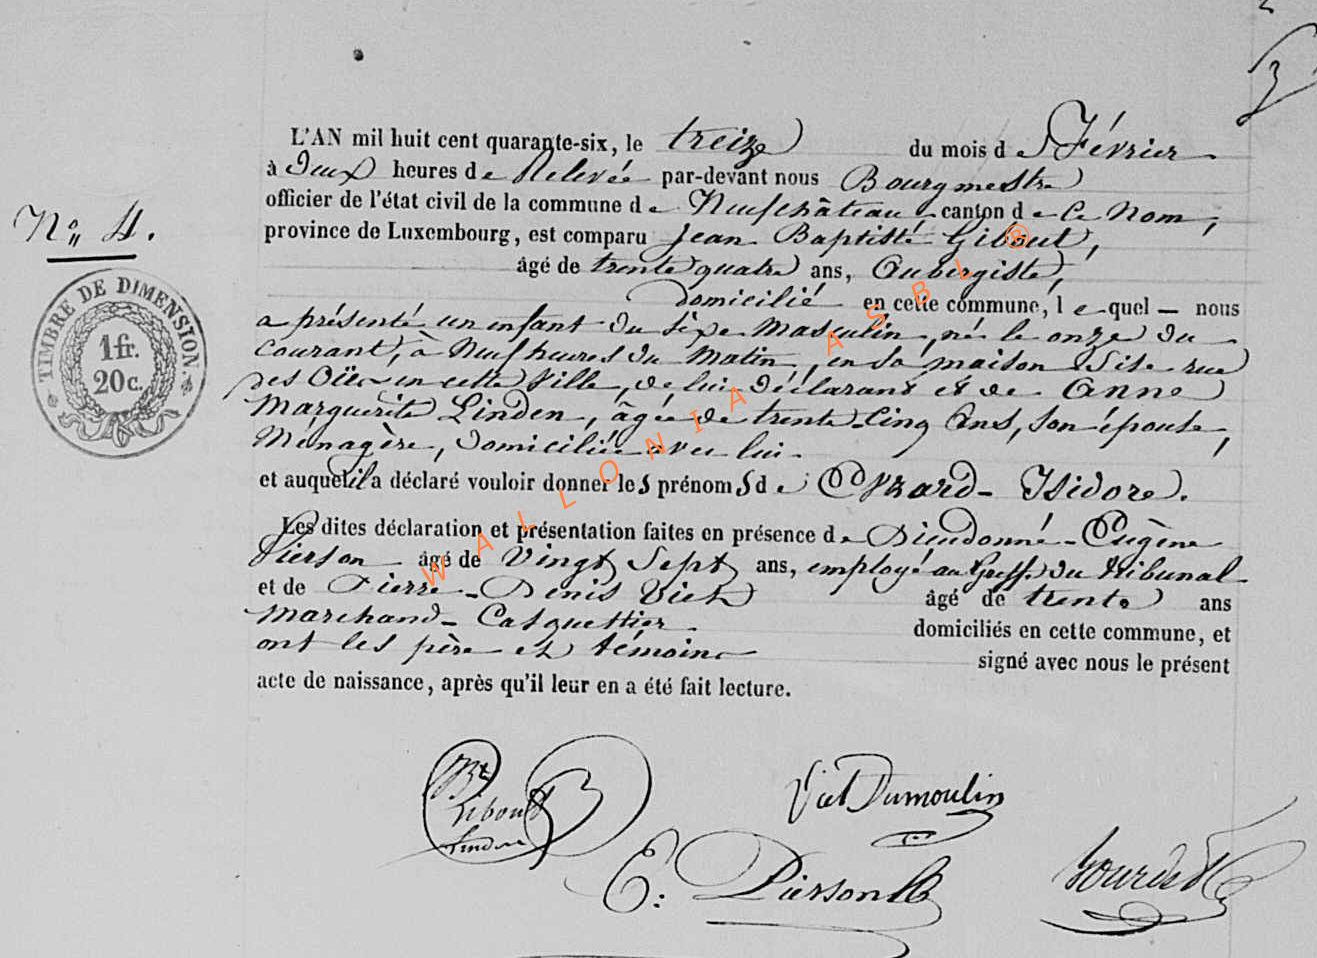 3
L'AN mil huit cent quarante-six, le treize du mois de Février
à deux heures de Relevée par-devant nous Bourgmestre
officier de l'état civil de la commune de Neufchâteau, canton de ce Nom,
Nº 4.
province de Luxembourg, est comparu Jean Baptiste Gibout,
âgé de trente quatre ans, Aubergiste,
domicilié en cette commune, lequel — nous
a présenté un enfant du sèxe Masculin, né le onze du
courant, à Neuf heures du Matin, en sa maison Sise rue
des Oües en cette Ville, de lui déclarant et de Anne
Marguerite Linden, âgée de trente-Cinq Ans, son épouse,
Ménagère, domiciliée avec lui.
et auquel il a déclaré vouloir donner les prénoms de Isidore.
Les dites déclaration et présentation faites en présence de Dieudonné-Eugène
Pierson âgé de Vingt Sept ans, employé au Greffe du tribunal
et de Pierre-Denis Viet âgé de trente ans
Marchand-Casquettier domiciliés en cette commune, et
ont les père et témoins signé avec nous le présent
acte de naissance, après qu'il leur en a été fait lecture.
TIMBRE DE DIMENSION.
1 fr.
20 c.
WALLONIA ASBL ®
Bte
Gibout
Linden
Viet Dumoulin
E: Pierson